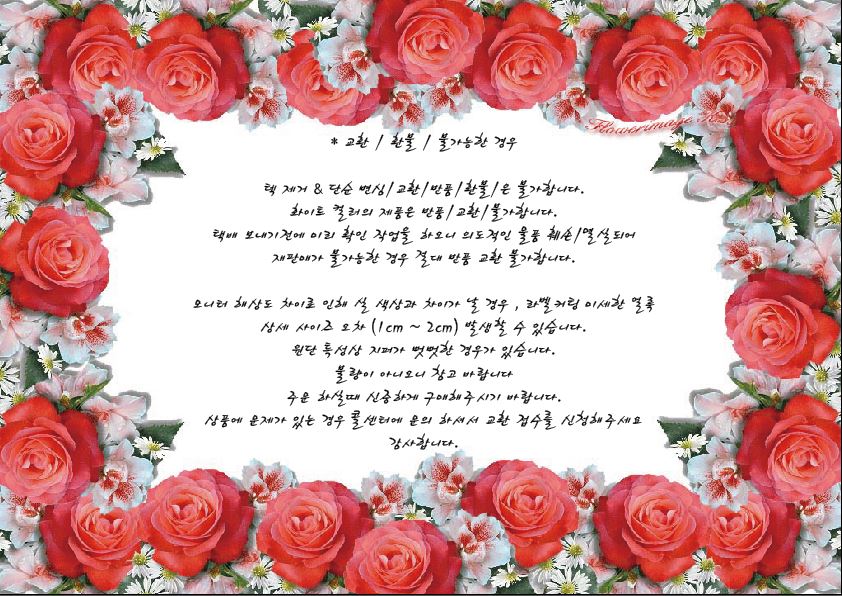 Flowerimage
* 교환 / 환불 / 불가능한 경우
텍 제거 & 단순 변심/교환/반품/환불/은 불가합니다.
화이트 컬러의 제품은 반품/교환/불가합니다.
택배 보내기전에 미리 확인 작업을 하오니 의도적인 물품 훼손/멸실되어
재판매가 불가능한 경우 절대 반품 교환 불가합니다.
모니터 해상도 차이로 인해 실 색상과 차이가 날 경우 , 라벨커팅 미세한 얼룩
상세 사이즈 오차 (1cm ~ 2cm) 발생할 수 있습니다.
원단 특성상 지퍼가 뻣뻣한 경우가 있습니다.
불량이 아니오니 참고 바랍니다
주문 하실때 신중하게 구매해주시기 바랍니다.
상품에 문제가 있는 경우 콜센터에 문의 하셔서 교환 접수를 신청해주세요
감사합니다.